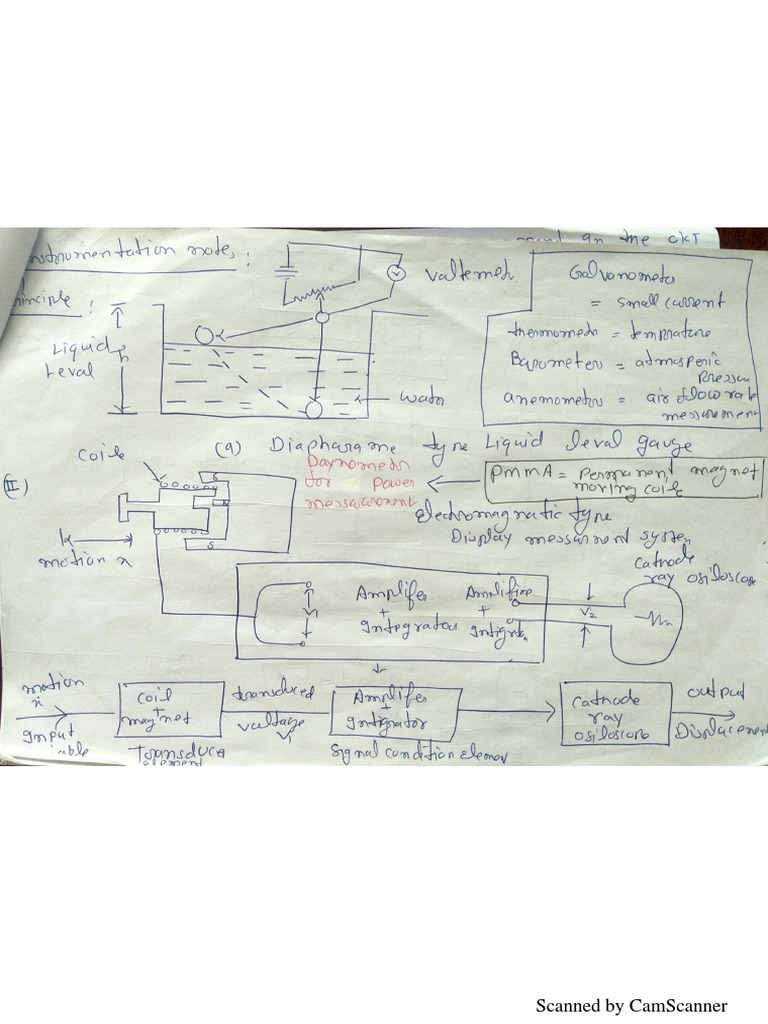 in the CKT
nstrumentation notes :
rinciple :
Valtemeh
Galvanometer
= small current
thermometer = temprature
Barometer = atmosperic
Pressure
anemometer = air flow rate
messurement
Liquid
Leval
h
water
(a) Diapharame type Liquid leval gauge
coile
(II)
Daynometer
for Power
messurement
PMMA = Permanent magnet
moving coile
Electromagnetic type
Display messurment system
S
N
S
motion x
V1
Amplifer
+
Integrator
Amplifire
+
V2
Cathode
ray osiloscope
motion
x
Input
iable
coil
+
magnet
Transduce
element
transduced
valtage
V1
Amplifer
+
Intigrator
Signal condition element
Cathode
ray
osiloscope
output
Displacement
Scanned by CamScanner